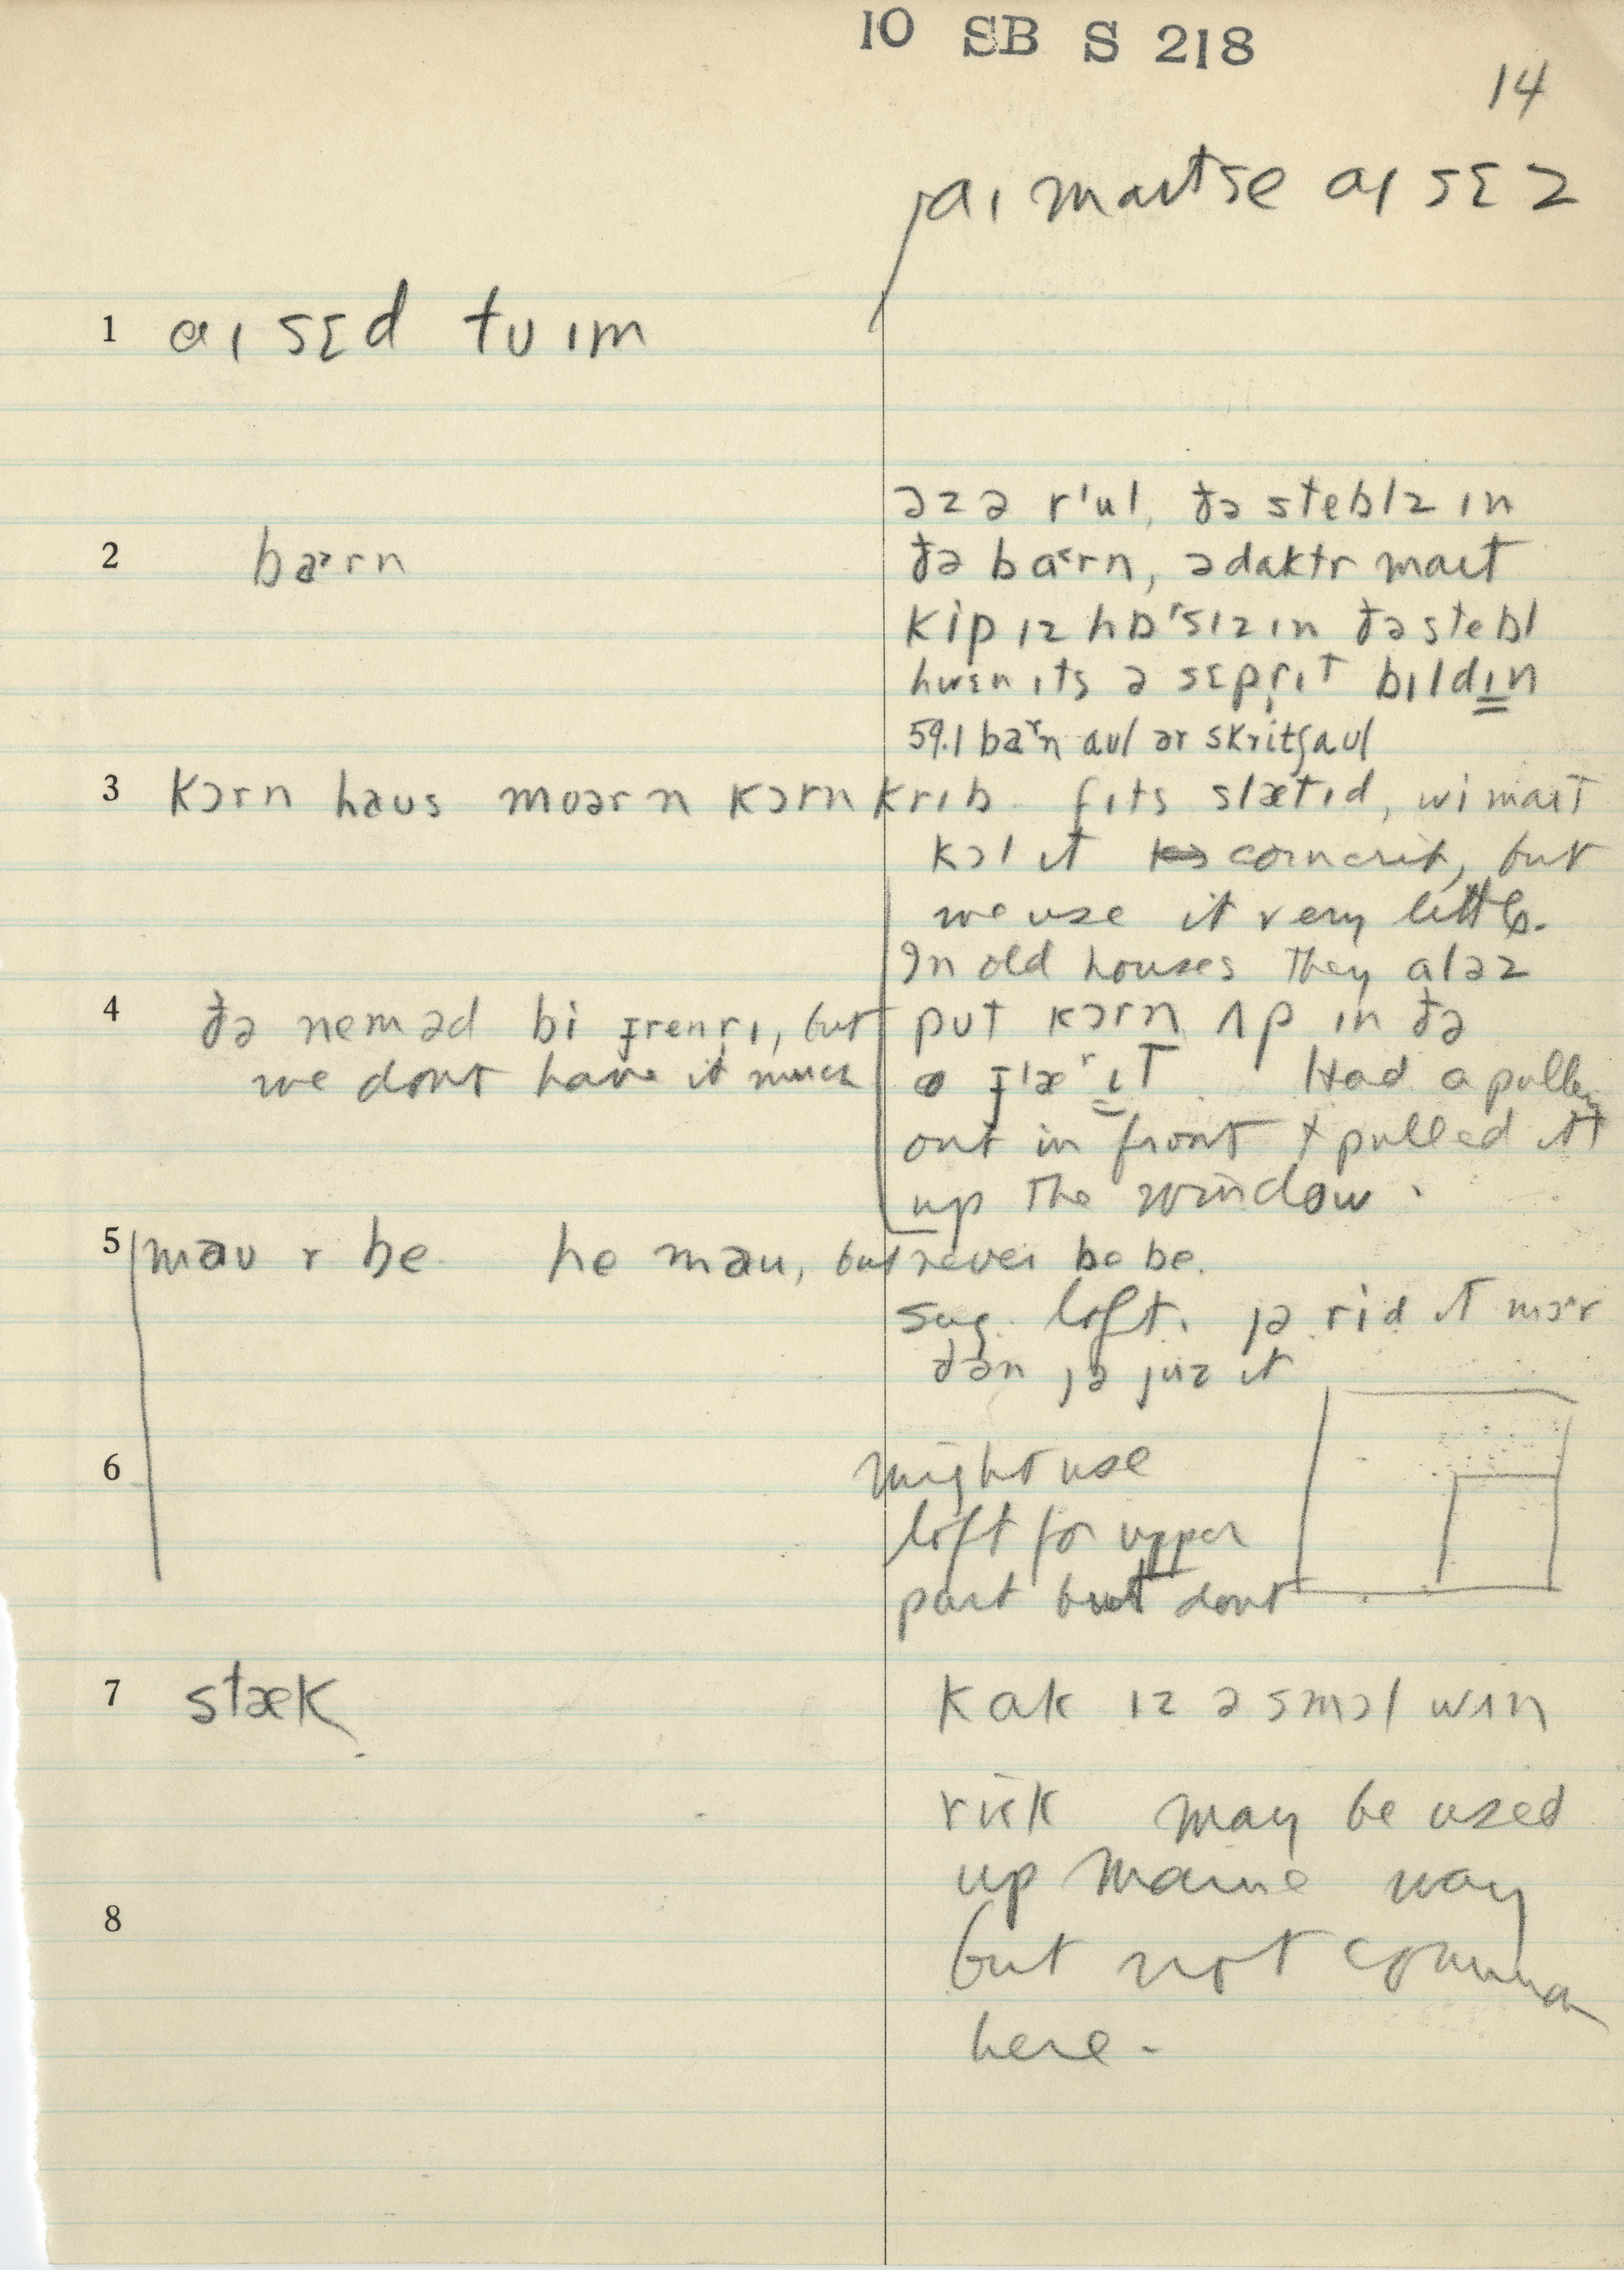 10 SB S 218
14
aɪ maɪt se aɪ sɛz
1 aɪ sɛd tʊ ɪm
əz ə r'ul, ðə steblz ɪn
2 ba˃rn
ðə ba˂rn, ə daktr maɪt
kip ɪz hɒ'sɪz ɪn ðə stebl
hwɛn ɪts ə sɛprɪt bɪldɪn
59.1 baʳn aʊl ər skritʃaʊl
3 kɔrn haʊs moərn kɔrn krɪb. ɪf ɪts slætɪd, wi maɪt
kɔl ɪt corncrib, but
we use it very little.
In old houses they aləz
4 ðə nem əd bi grenrɪ, but put kɔrn ʌp ɪn ðə
we dont have it much Had a pulley
out in front + pulled it
up the window.
5 maʊ r be he maʊ, but never be be.
sug. loft. jə rid ɪt mɔ'r
ðən jə juz ɪt
6 might use
loft for upper
part but dont
7 stæk kak ɪz ə smɔl wʌn
rick may be used
up Maine way
8
but not common
here.